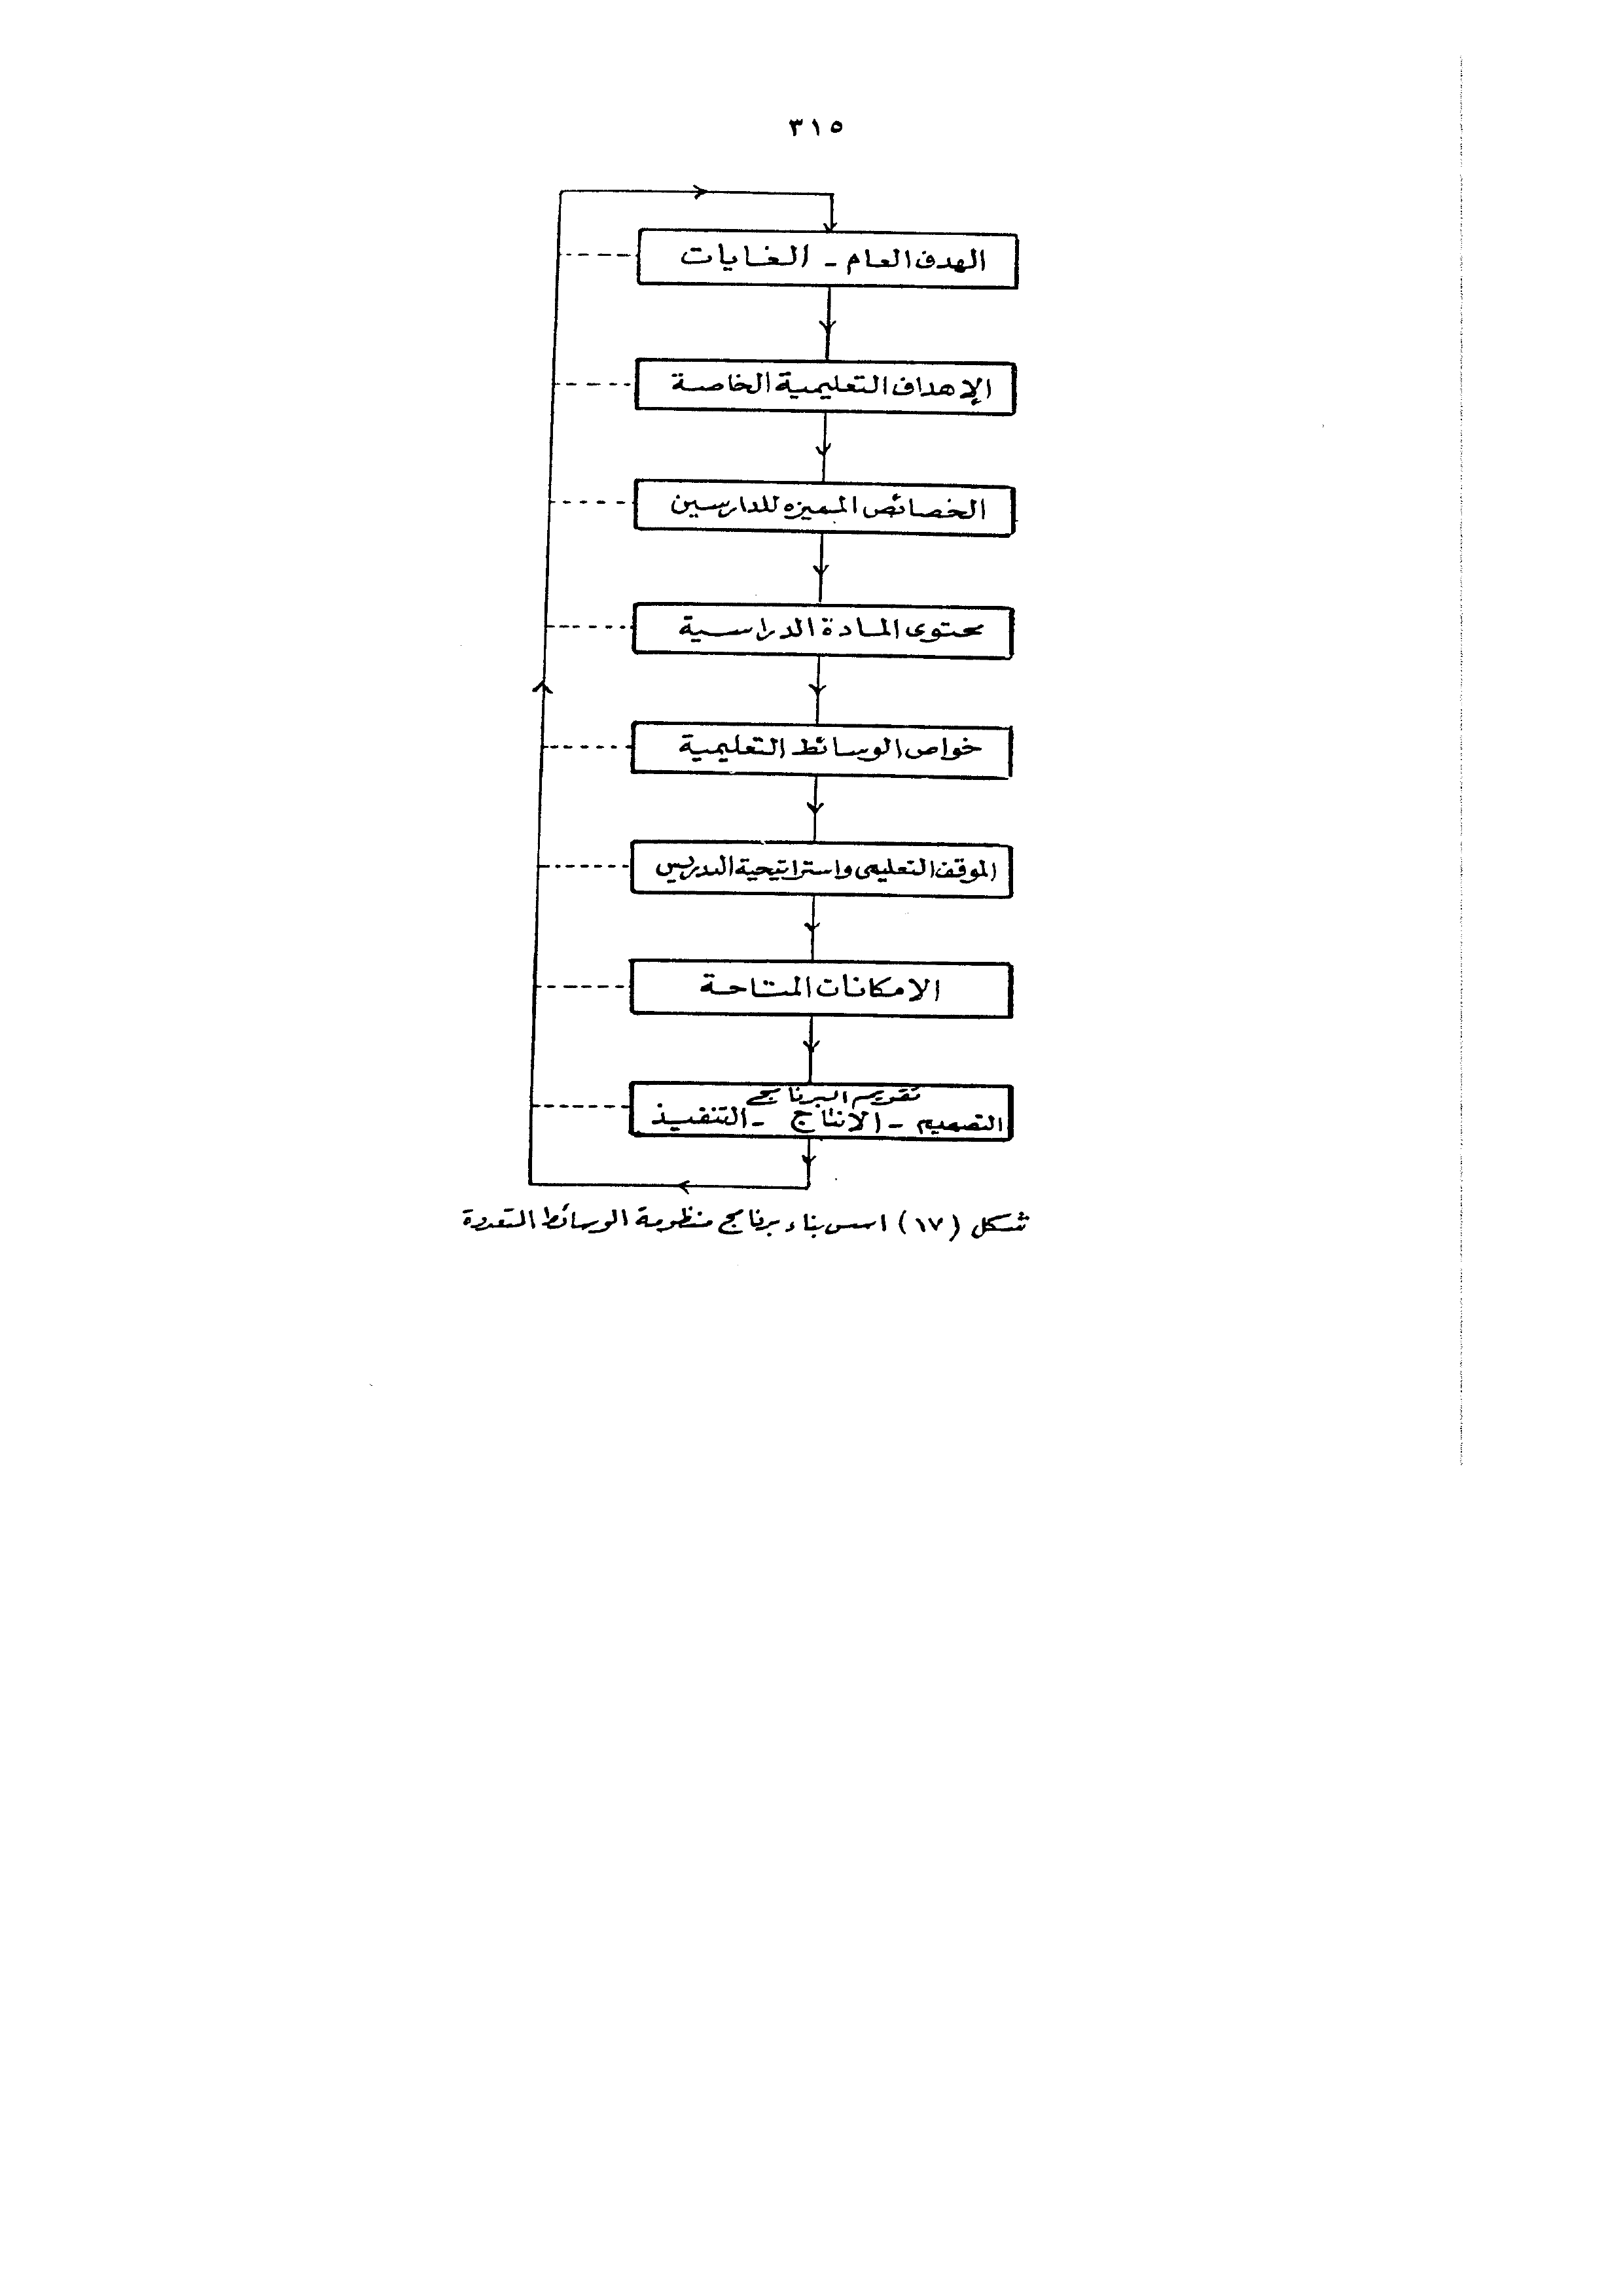 ٣١٥
الهدف العام - الغايات
الإهداف التعليمية الخاصة
الخصائص المميزه للدارسين
محتوى المادة الدراسية
خواص الوسائط التعليمية
الموقف التعليمى واستراتيجية التدريس
الامكانات المتاحة
تقويم البرنامج
التصميم - الانتاج - التنفيذ
شكل (١٧) اسس بناء برنامج منظومة الوسائط المتعددة